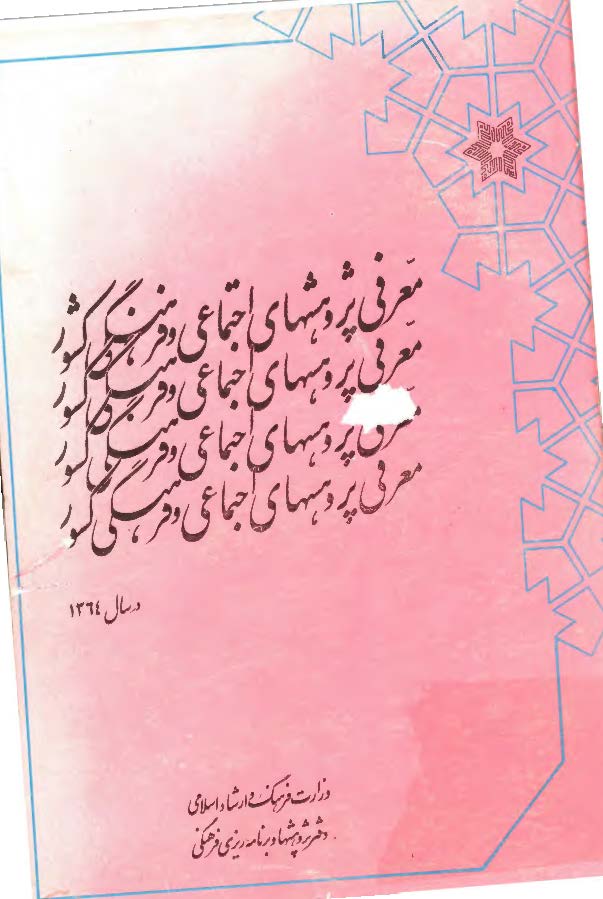 معرّفی پژوهشهای اجتماعی و فرهنگی کشور
معرّفی پژوهشهای اجتماعی و فرهنگی کشور
معرّفی پژوهشهای اجتماعی و فرهنگی کشور
معرفی پژوهشهای اجتماعی و فرهنگی کشور
در سال ۱۳٦٤
وزارت فرهنگ و ارشاد اسلامی
دفتر پژوهشها و برنامه ریزی فرهنگی